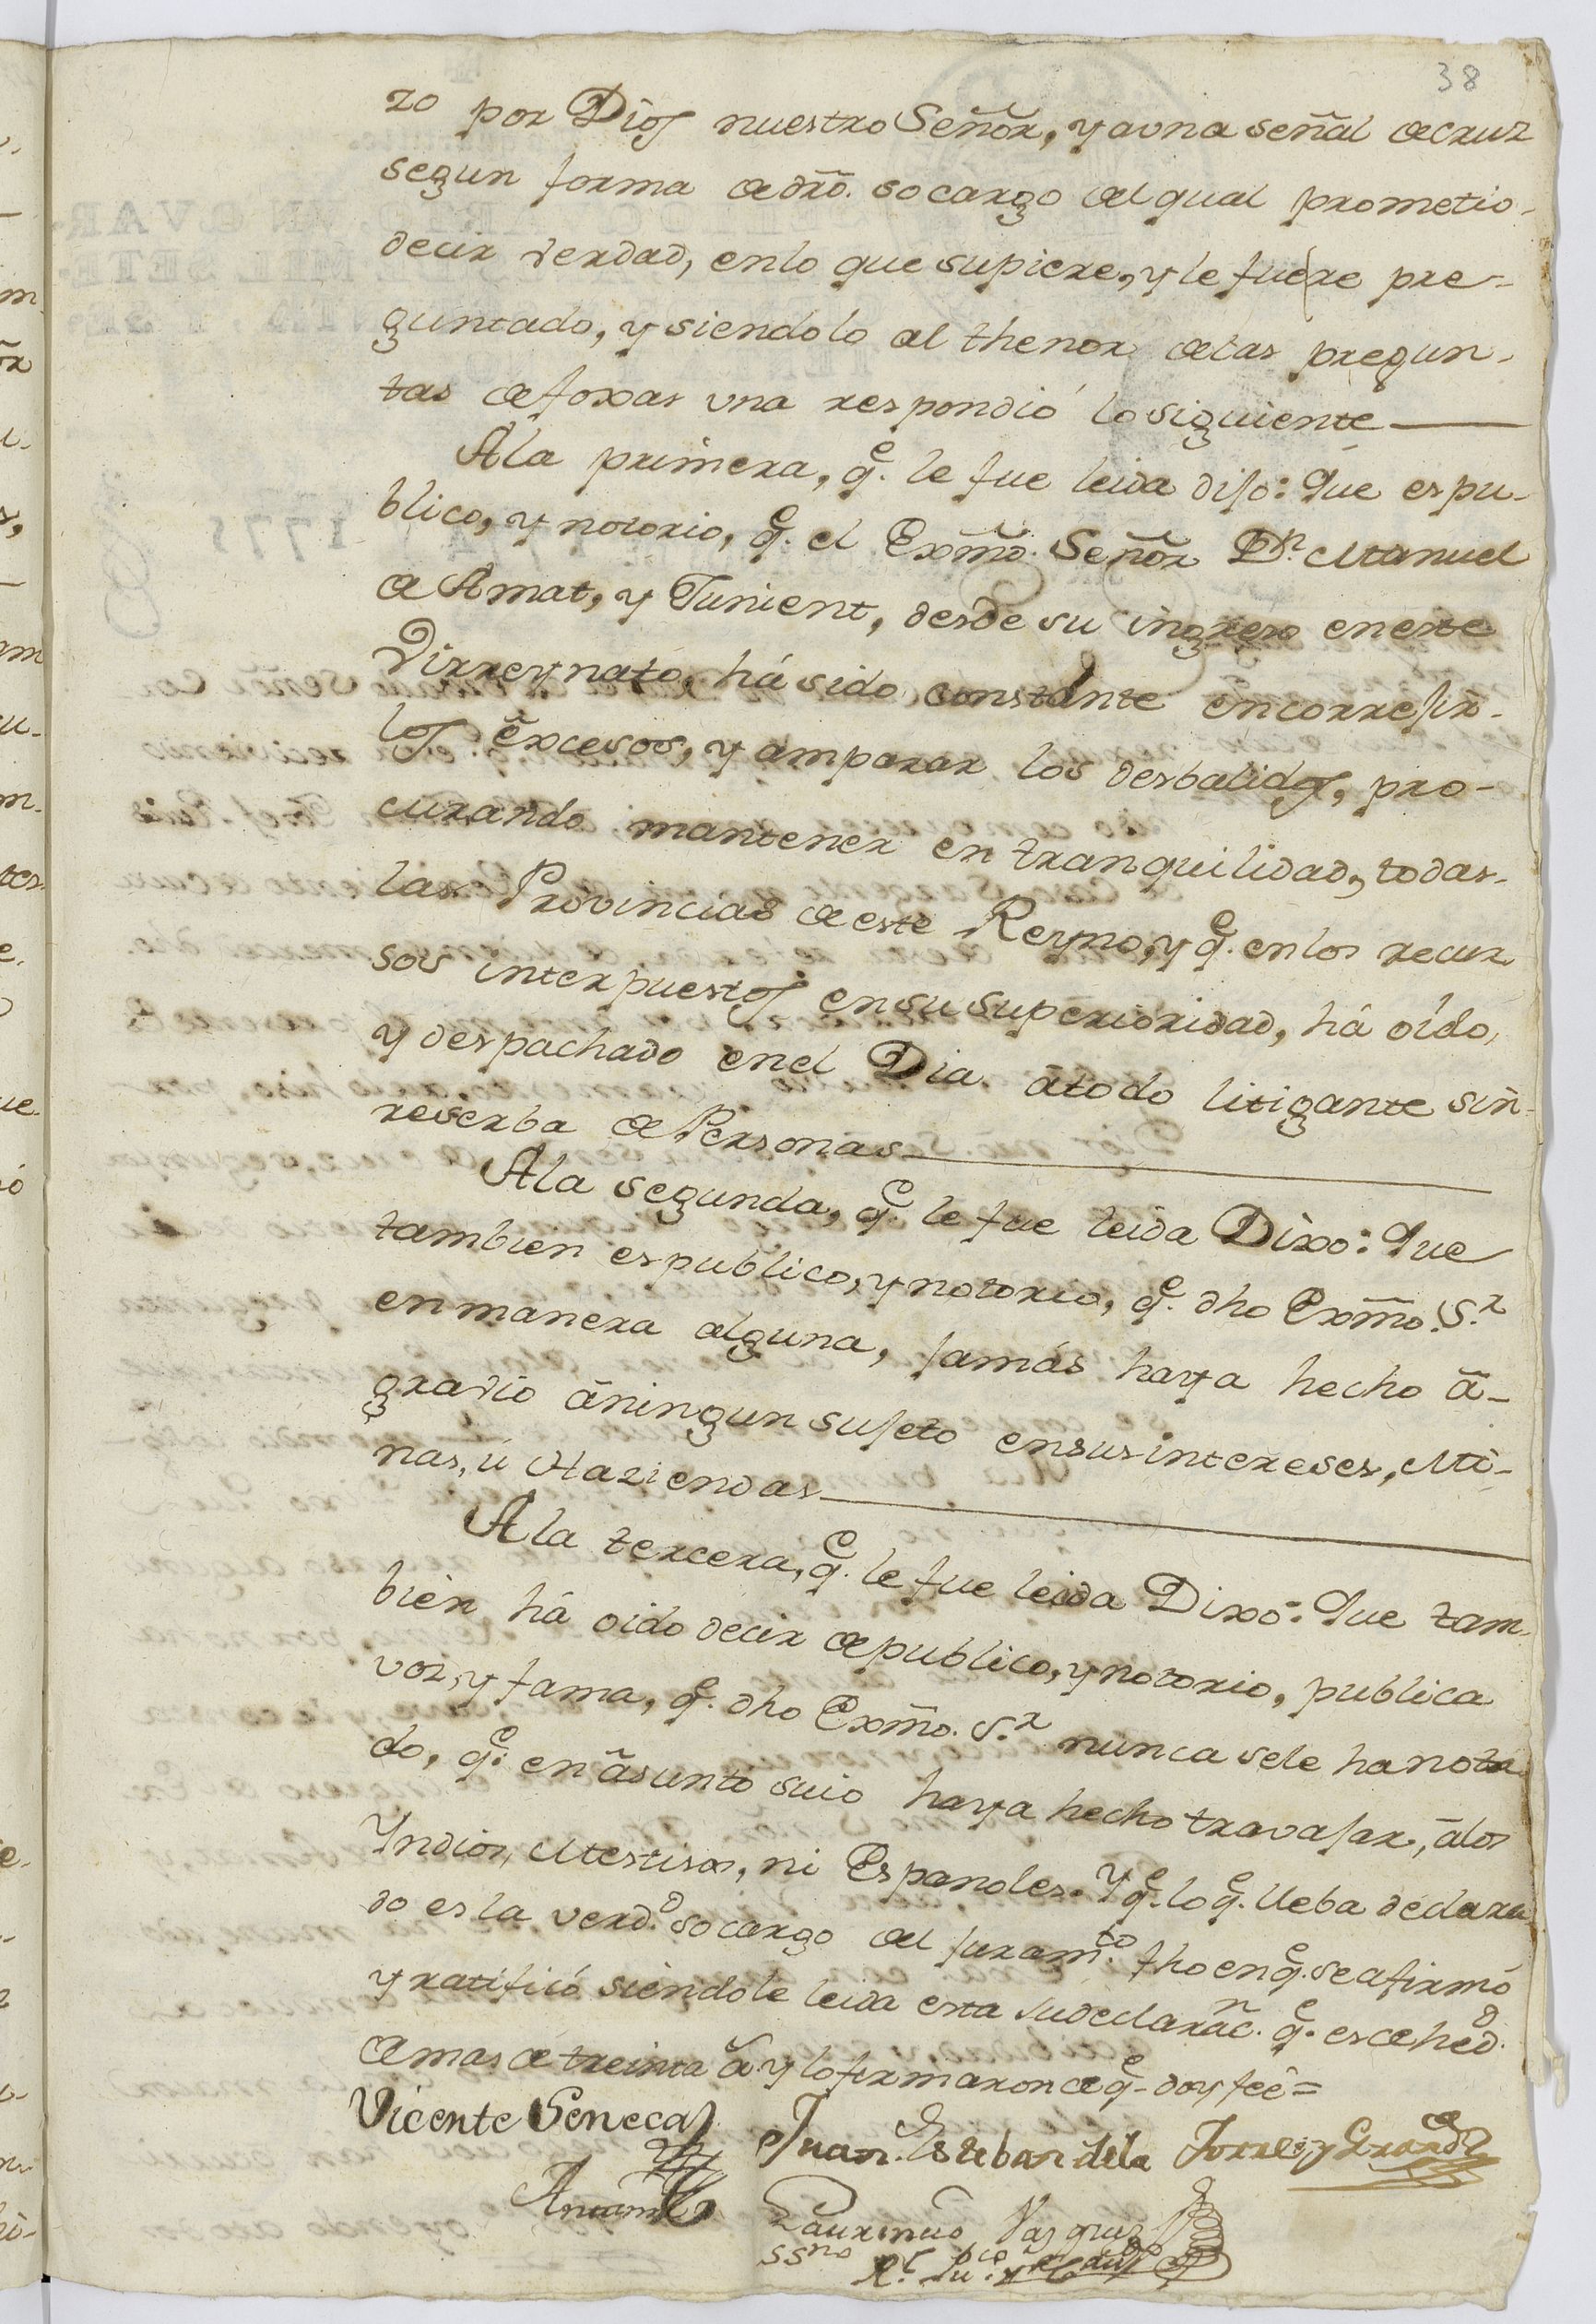 38
zo por Dios nuestro Señor, y a vna señal de cruz
segun forma de dro. so cargo del qual prometio
decir verdad, en lo que supiere, y le fuere pre-
guntado, y siendolo al thenor de las pregun-
tas de foxas vna respondió lo siguiente
A la primera, q.e le fue leida dijo: Que es pu-
blico, y notorio, q.e el Exmo. Señor D.n Manuel
de Amat, y Junient, desde su ingreso en este
Virreynato, há sido constante en correjir
los excesos, y amparar los desbalidos, pro-
curando mantener en tranquilidad, todas
las Provincias de este Reyno, y q.e en los recur
sos interpuestos en su superioridad, há oído,
y despachado en el Dia á todo litigante sin
reserba de Personas
A la segunda, q.e le fue leida Dixo: Que
tambien es publico, y notorio, q.e dho Exmo. S.r
en manera alguna, jamás haya hecho á-
gravio á ningun sujeto en sus intereses, Mi-
nas, ú Haziendas
A la tercera, q.e le fue leida Dixo: Que tam-
bien há oido decir de publico, y notorio, publica
voz, y fama, q.e dho Exmo. S.r nunca se le ha nota
do, q.e en ásunto suio haya hecho travajar, á los
Yndios, Mestisos, ni Espanoles. Y q.e lo q.e lleba declara
do es la verd.d so cargo del juram.to fho en q.e se afirmó
y ratificó siendole leida esta su declarac.n q.e es de hed.d
de mas de treinta a.s y lo firmaron de q.e doy feé =
Vicente Seneca
Juan Esteban de la Torre y Grand
Antemi
Laurencio Vasquez
SSno R.l Pu.co